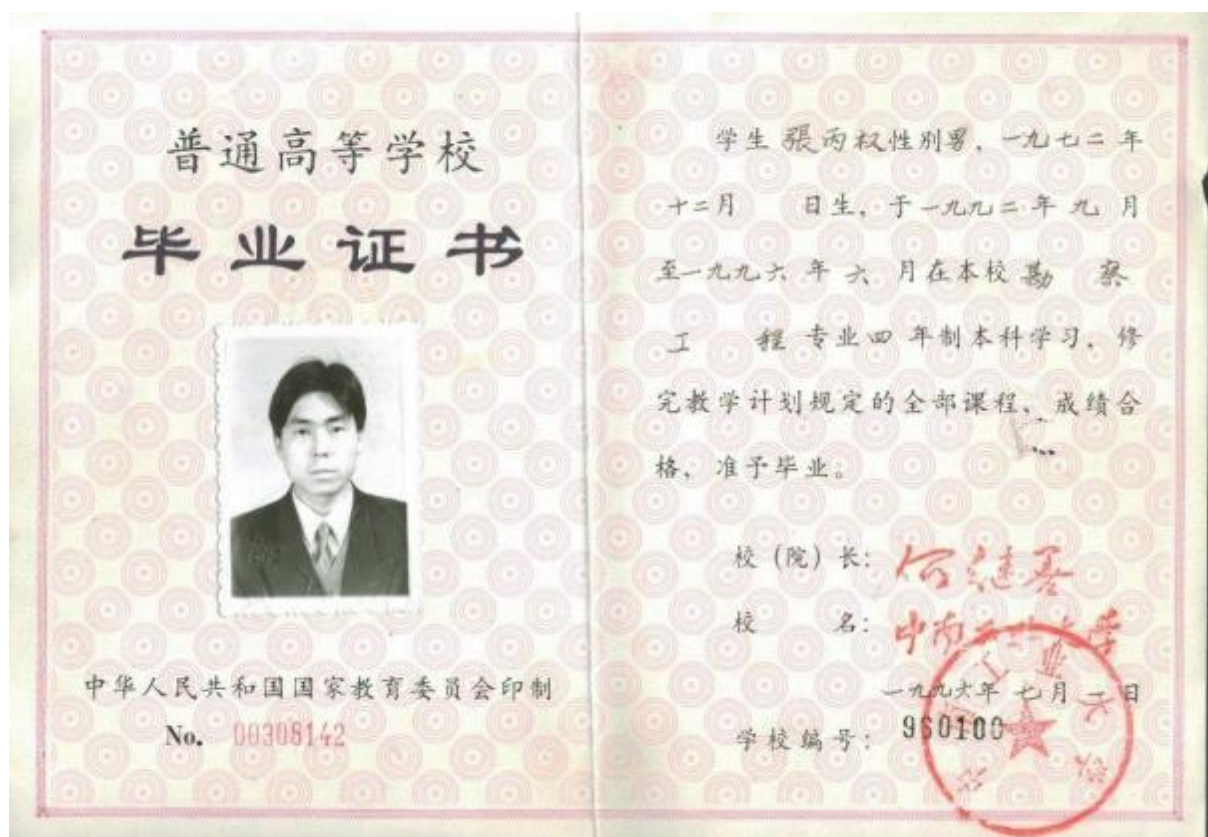 普通高等学校
毕业证书
中华人民共和国国家教育委员会印制
No. 00308142
学生 張丙权性别男、一九七二年
十二月 日生、于一九九二年九月
至一九九六年六月在本校勘 察
工 程专业四年制本科学习、修
完教学计划规定的全部课程、成绩合
格、准予毕业。
校(院)长: 何继善
校 名: 中南工业大学
一九九六年七月 日
学校编号: 960100